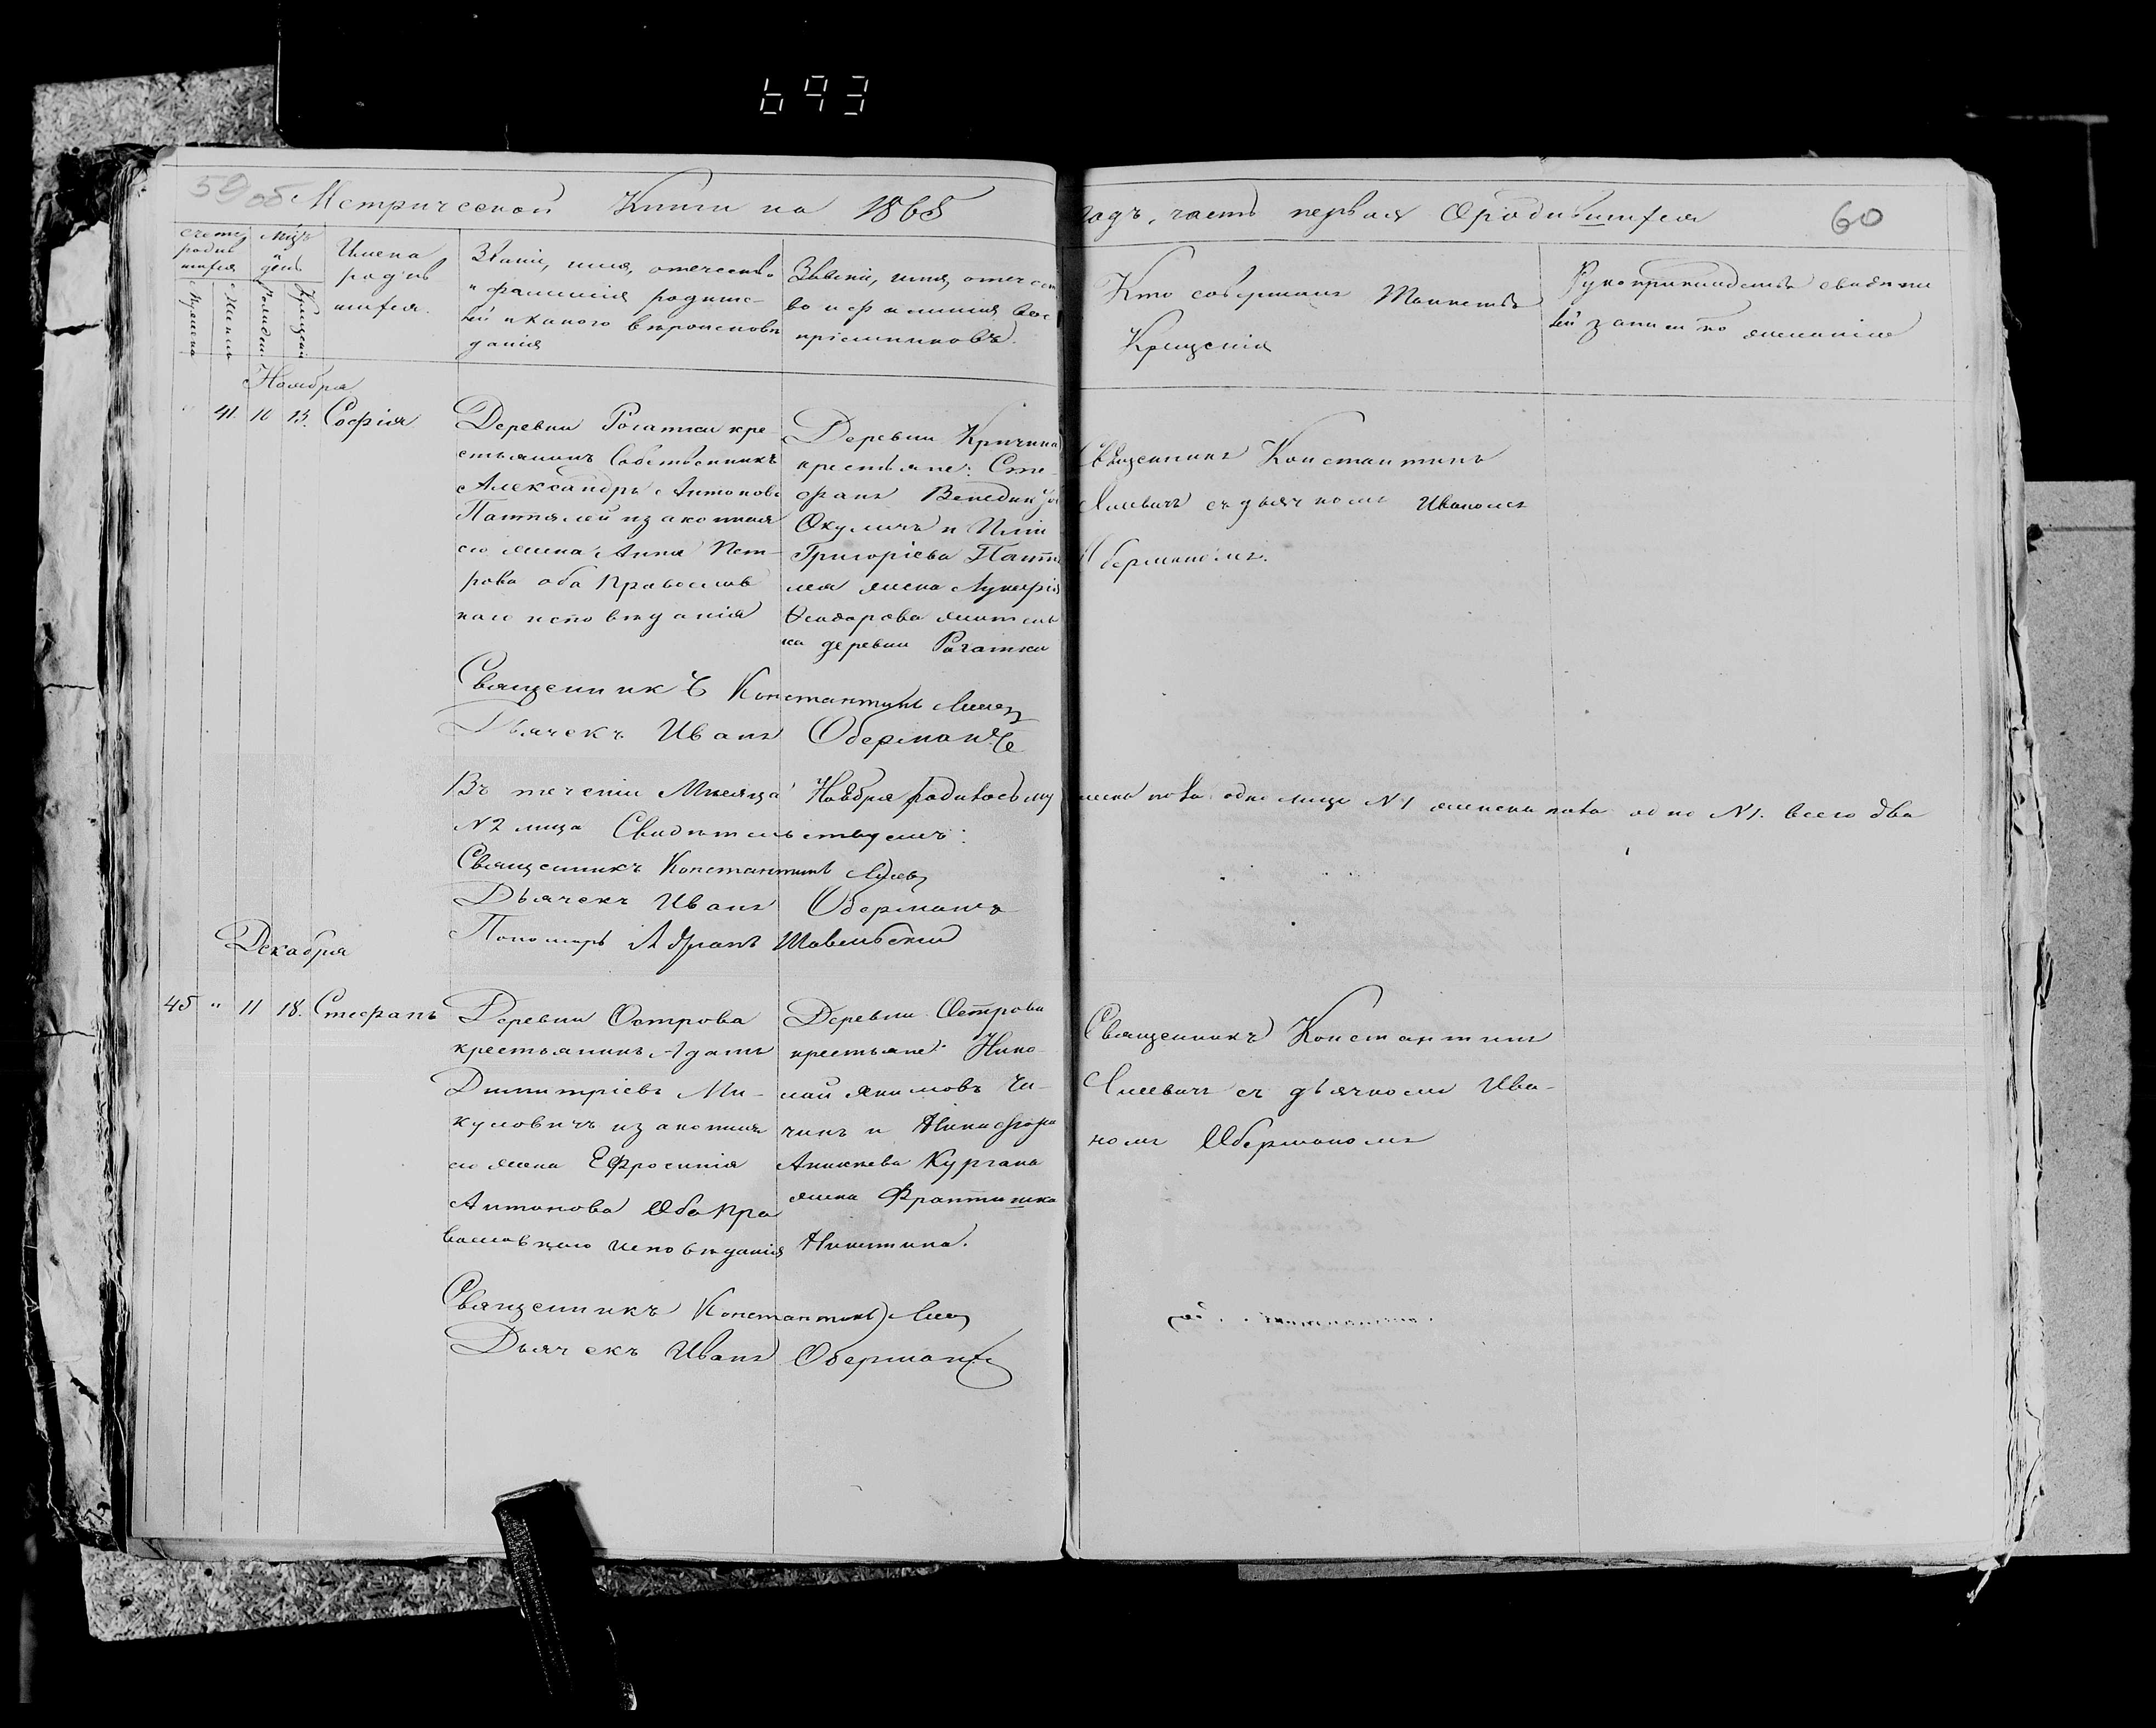 693
59 об Метрической Книги на 1868
годъ, часть первая О родившихся
60
Счетъ родившихся
Мужеска
Женска
Мцъ и день
Рожденія
Крещенія
Имена
родив
шихся.
Званіе, имя, отечество
и фамилія родите-
лей и какого вѣроисповѣ
данія
Званіе, имя, отечест
во и фамилія вос
пріемниковъ.
Кто совершалъ Таинство
Крещенія
Рукоприкладство свидѣте
лей записи по желанію
Ноября
41. 10 13. Софія
Деревни Рогатки кре-
стьянинъ Собственникъ
Александръ Антоновъ
законная
его жена Анна Пет-
рова оба Православ
наго исповѣданія
Деревни Кричина
крестьяне: Сте-
фанъ
Окуличъ и
Григоріева
жена
Ѳеодорова житель
ка деревни Рогатки
Священникъ Константинъ
съ дьячкомъ Иваномъ
Оберманомъ.
Священникъ Константинъ
Дьячекъ Иванъ Оберманъ
Въ теченіи Мѣсяца Ноября родилось му
жеска пола одно лице №1 женска пола одно №1. всего два
№2 лица Свидѣтельствуемъ:
Священникъ Константинъ
Дьячекъ Иванъ Оберманъ
Пономарь Шавельскій
Декабря
45 " 11 18. Стефанъ
Деревни Острова
крестьянинъ Адамъ
Димитріевъ Ми-
куловичъ и законная
его жена Ефросинія
Антонова Оба Пра
вославнаго исповѣданія
Деревни Острова
крестьяне: Нико-
лай Якимовъ Чи-
чинъ и Никифора
Кургана
жена
Никитина.
Священникъ Константинъ
съ дьячкомъ Ива-
номъ Оберманомъ
Священникъ Константинъ
Дьячекъ Иванъ Оберманъ